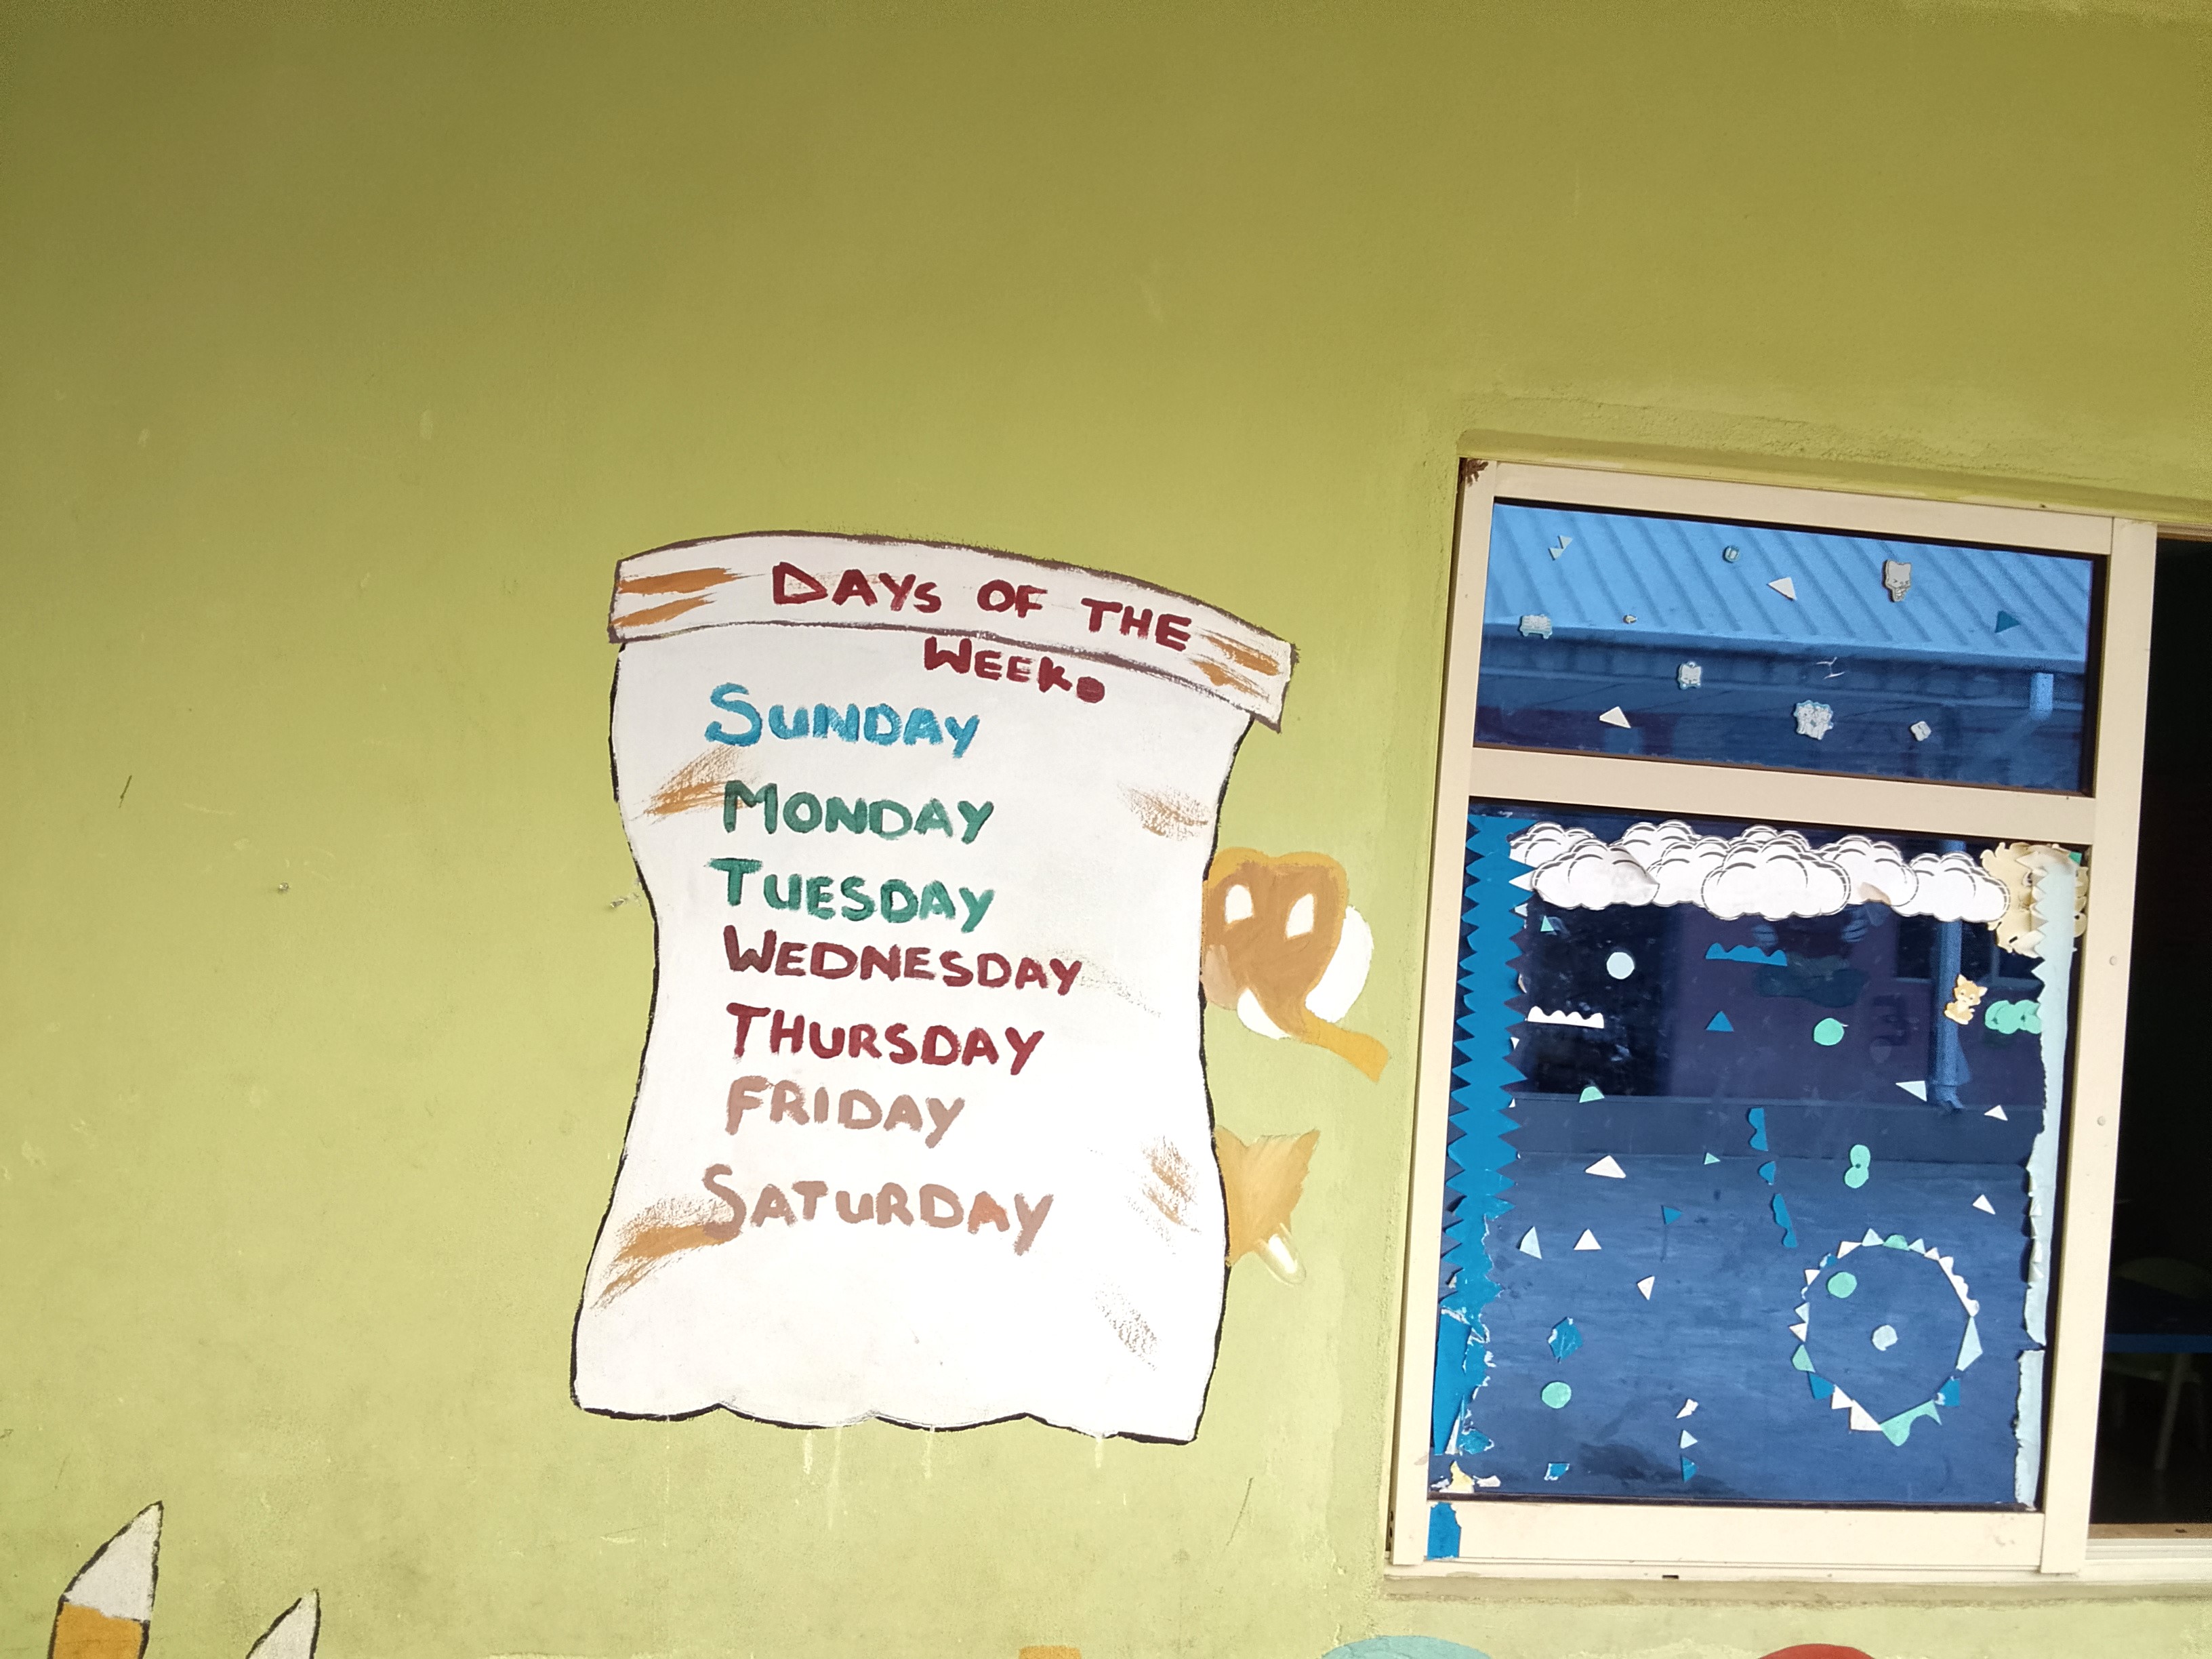 DAYS OF THE
WEEK.
SUNDAY
MONDAY
TUESDAY
WEDNESDAY
THURSDAY
FRIDAY
SATURDAY